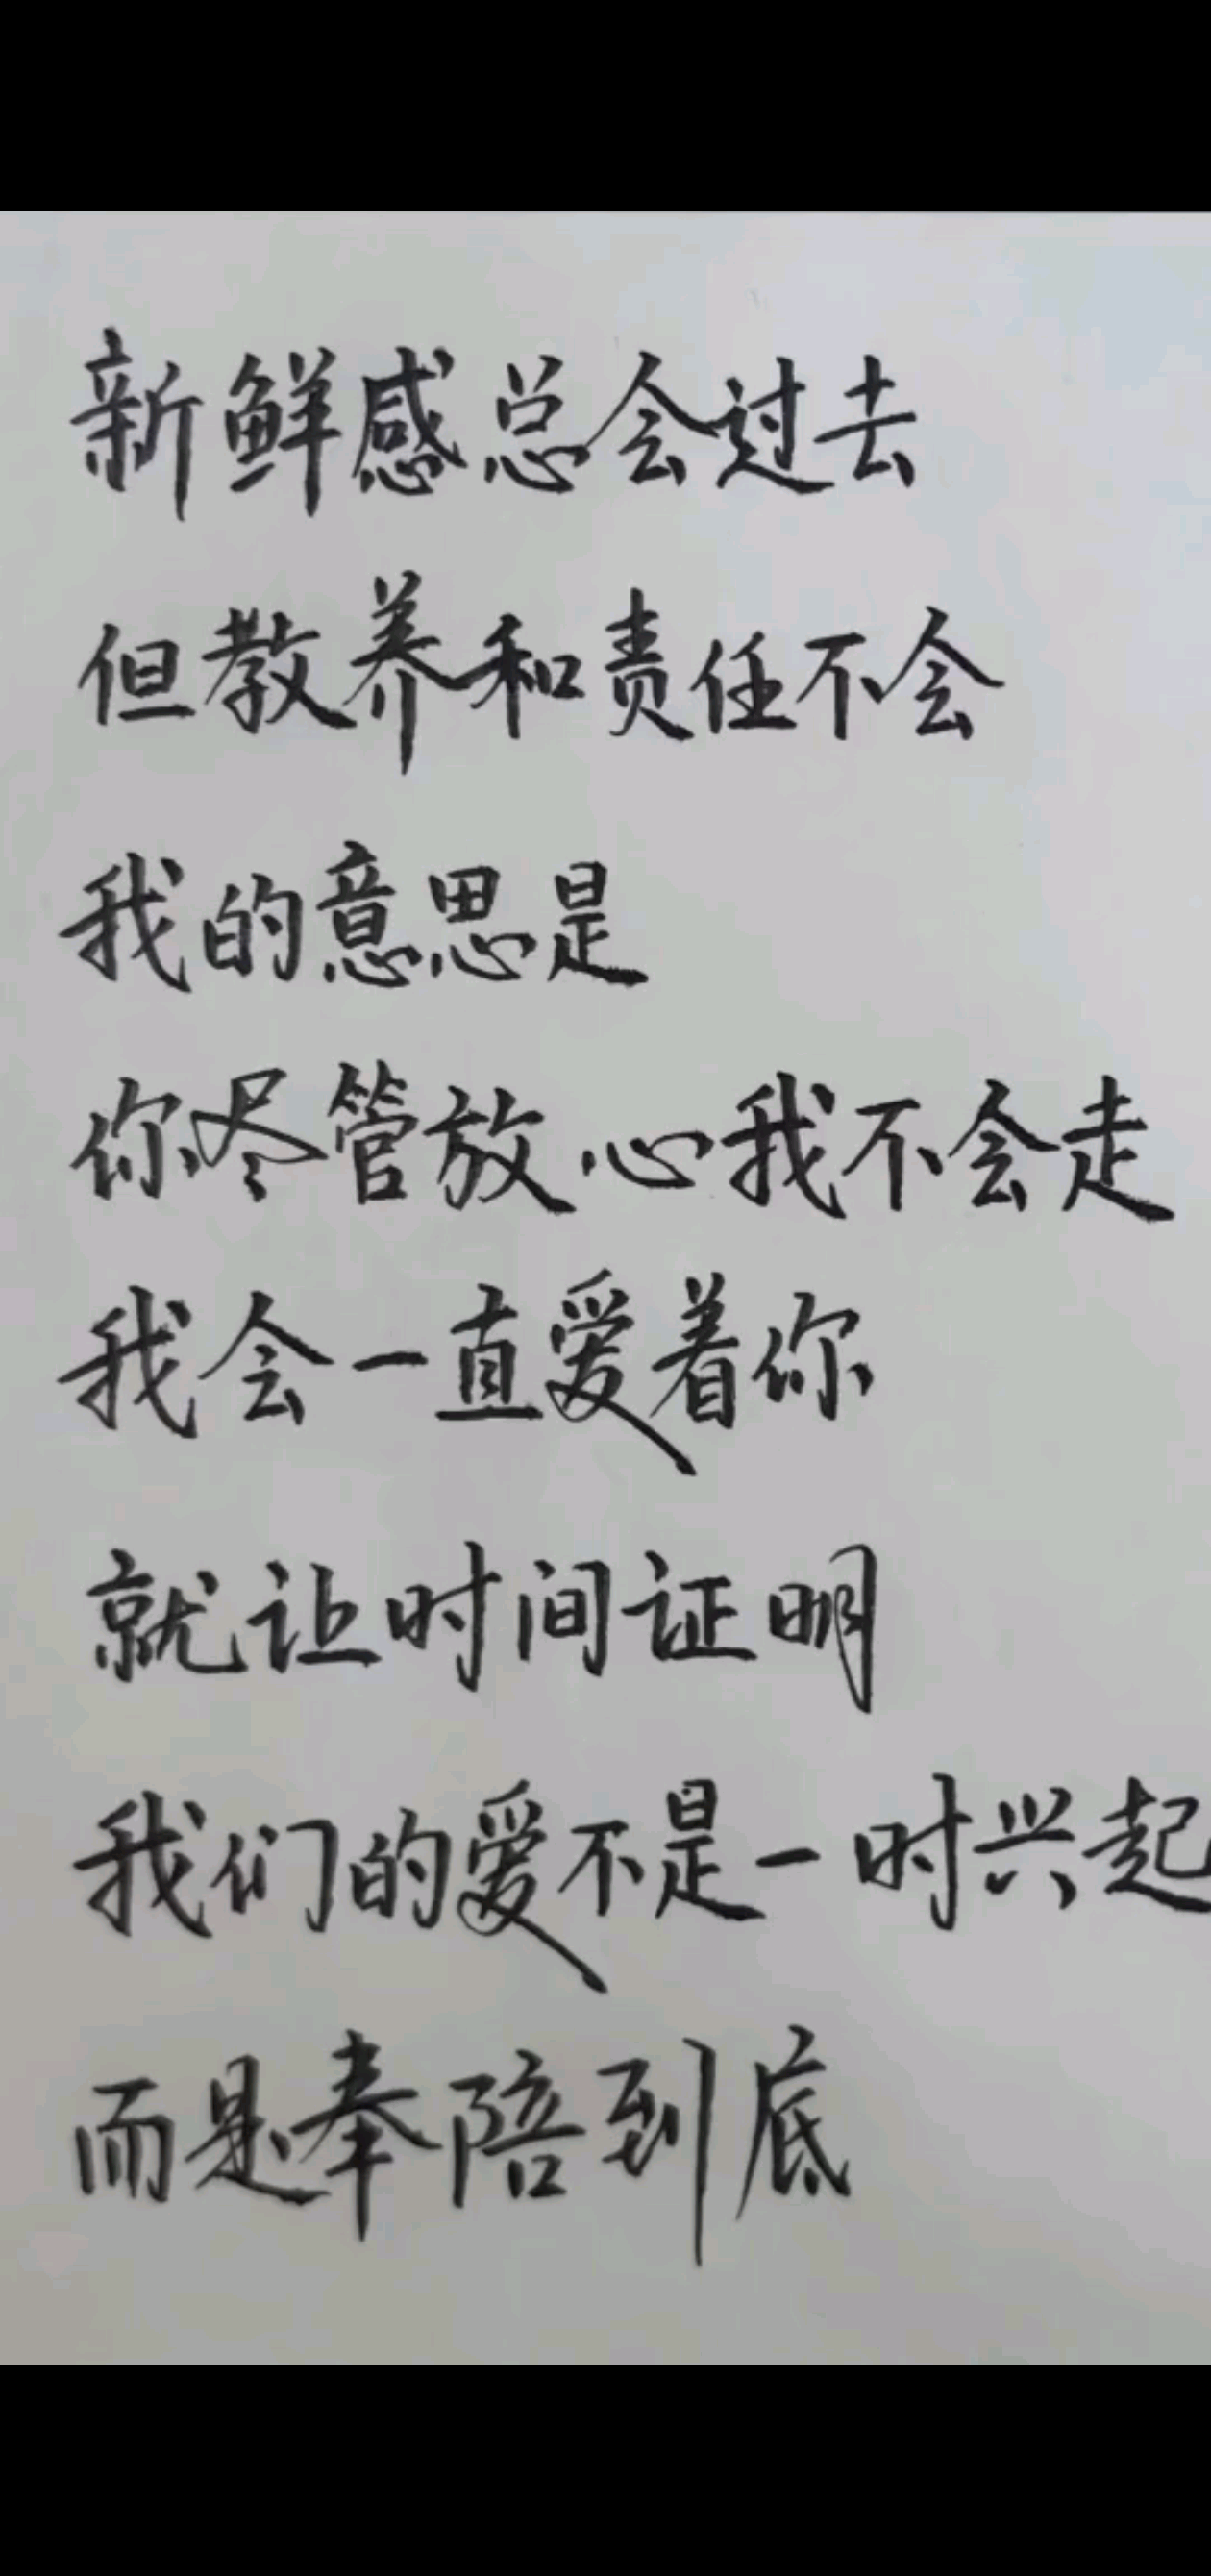 新鲜感总会过去
但教养和责任不会
我的意思是
你尽管放心我不会走
我会一直爱着你
就让时间证明
我们的爱不是一时兴起
而是奉陪到底